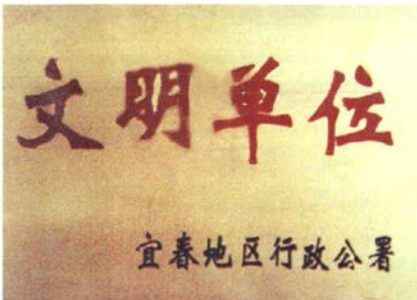 文明单位
宜春地区行政公署